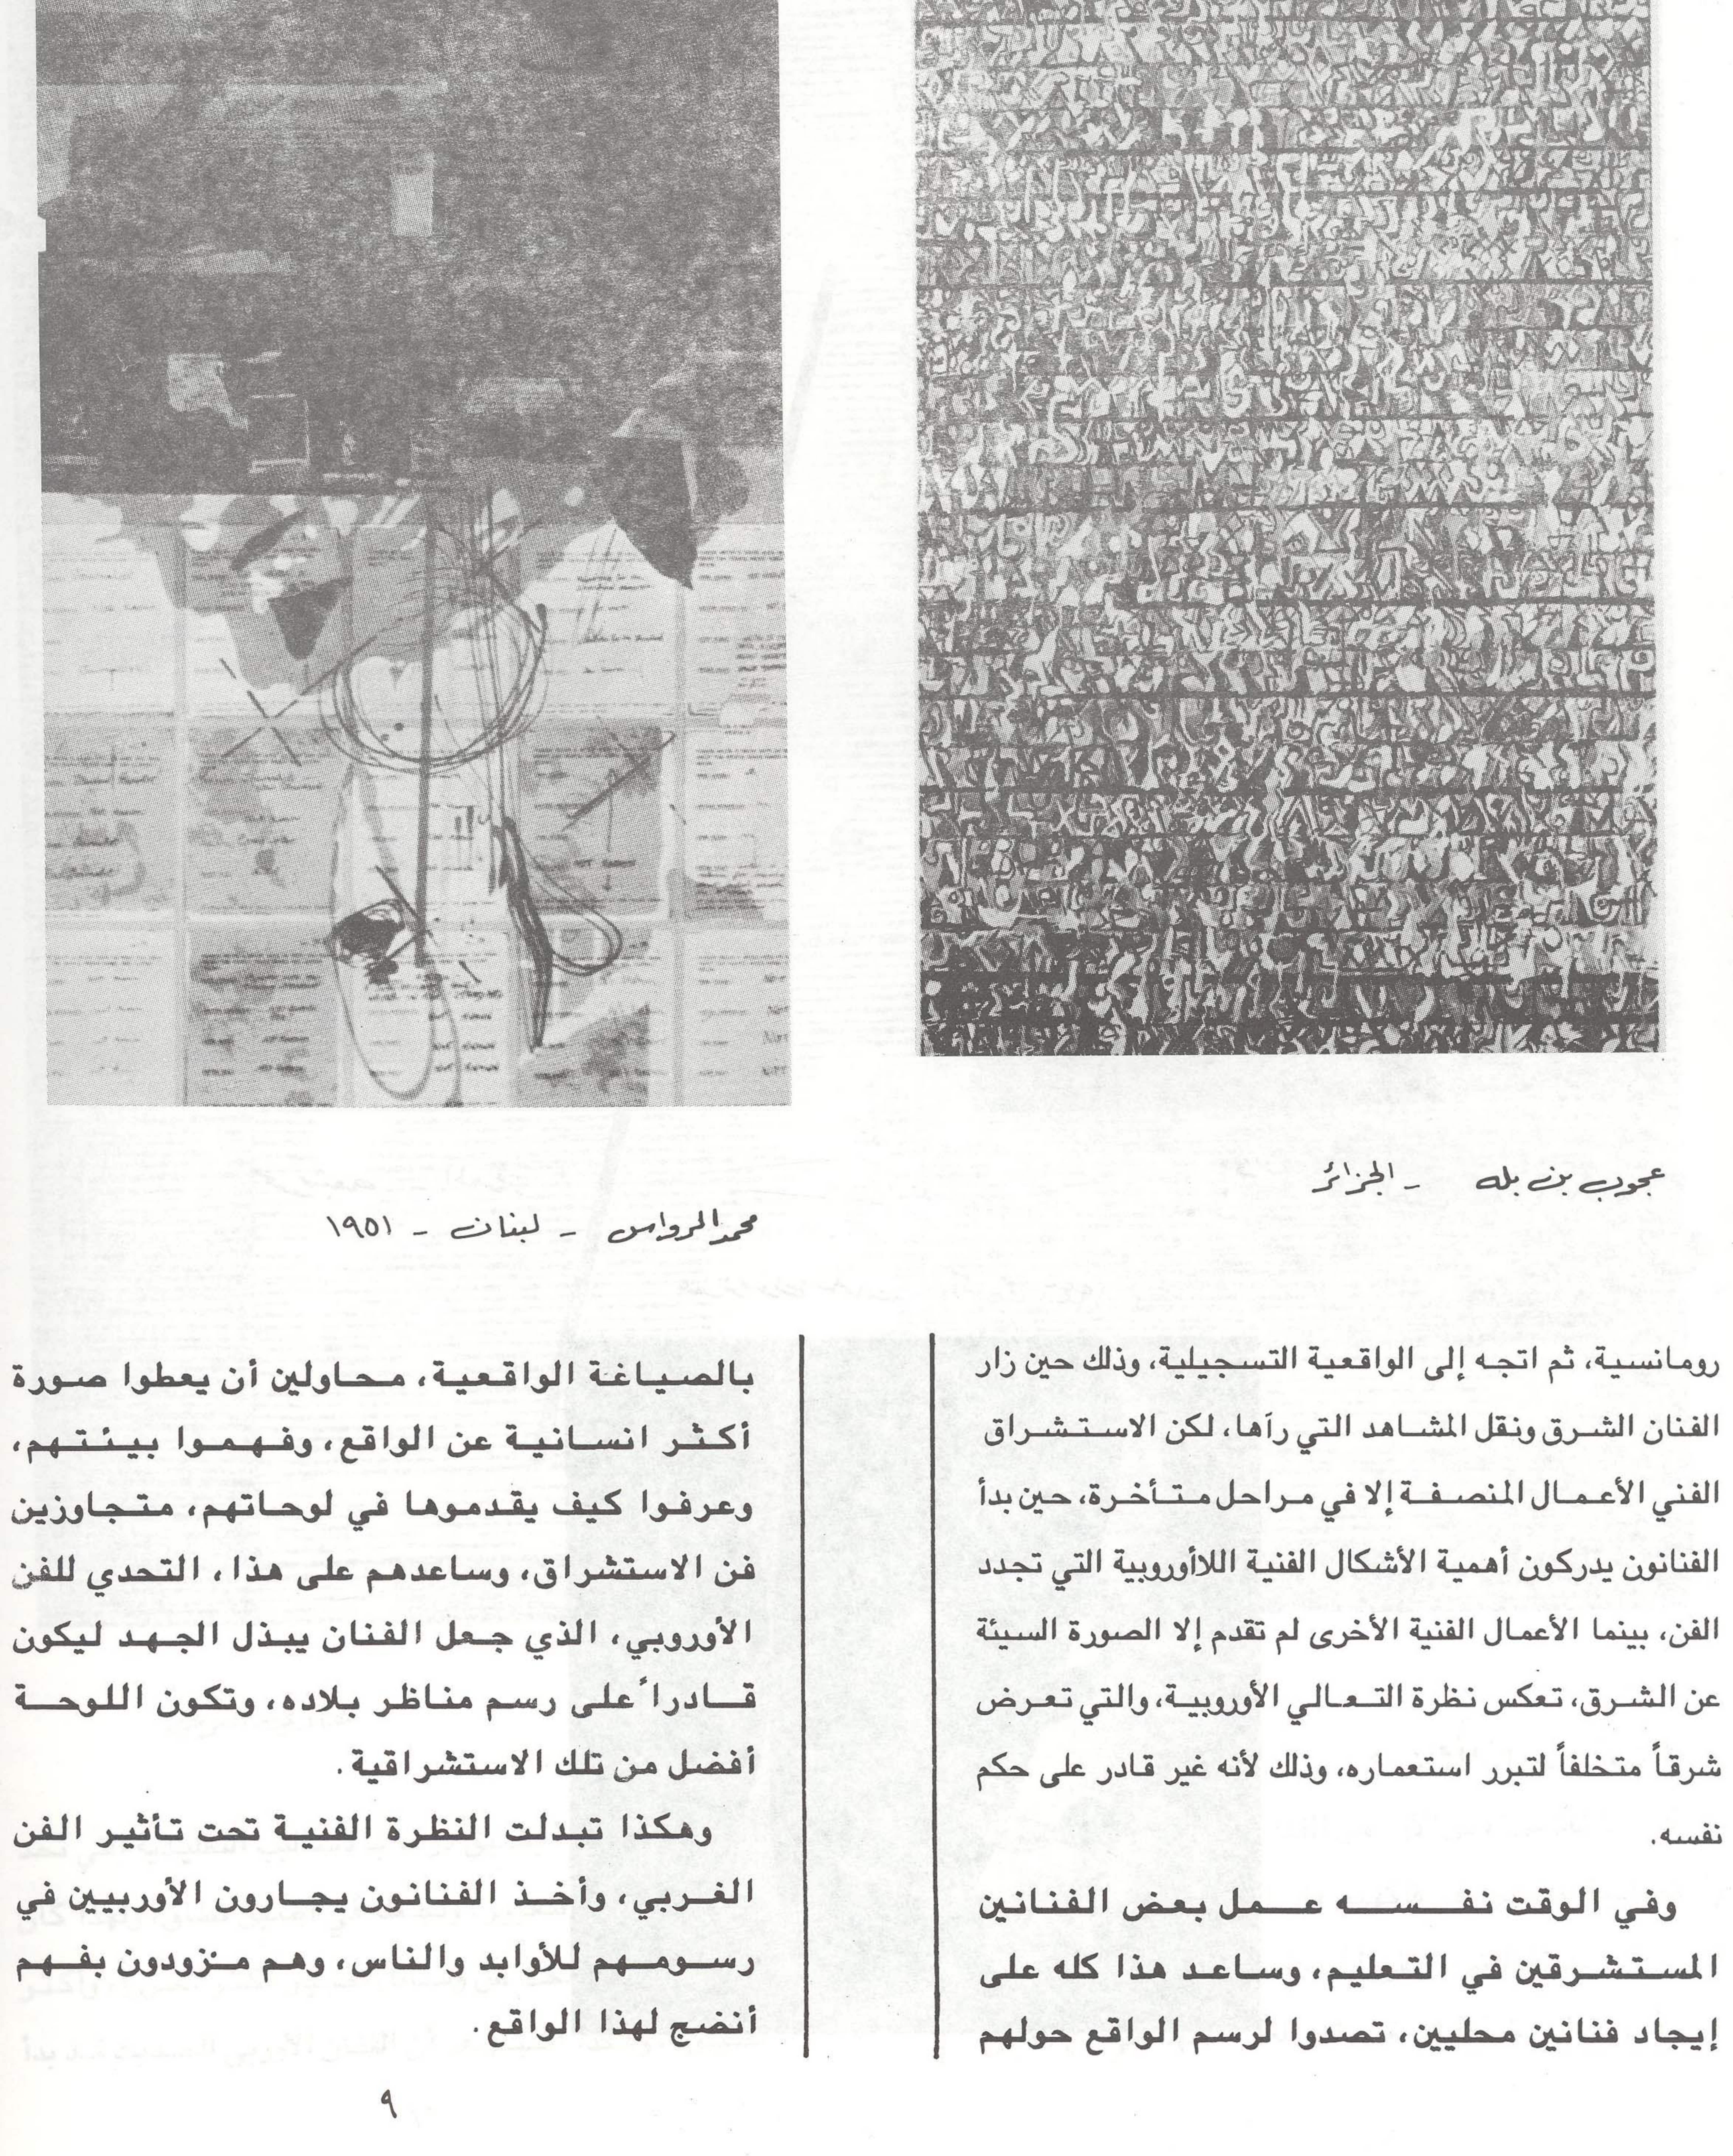 عجوب بن بله - الجزائر
محمد الرواس - لبنان - ١٩٥١
رومانسية، ثم اتجه إلى الواقعية التسجيلية، وذلك حين زار
الفنان الشرق ونقل المشاهد التي رآها، لكن الاستشراق
الفني الأعمال المنصفة إلا في مراحل متأخرة، حين بدأ
الفنانون يدركون أهمية الأشكال الفنية اللاأوروبية التي تجدد
الفن، بينما الأعمال الفنية الأخرى لم تقدم إلا الصورة السيئة
عن الشرق، تعكس نظرة التعالي الأوروبية، والتي تعرض
شرقاً متخلفاً لتبرر استعماره، وذلك لأنه غير قادر على حكم
نفسه.
وفي الوقت نفسه عمل بعض الفنانين
المستشرقين في التعليم، وساعد هذا كله على
إيجاد فنانين محليين، تصدوا لرسم الواقع حولهم
بالصياغة الواقعية، محاولين أن يعطوا صورة
أكثر انسانية عن الواقع، وفهموا بيئتهم،
وعرفوا كيف يقدموها في لوحاتهم، متجاوزين
فن الاستشراق، وساعدهم على هذا، التحدي للفن
الأوروبي، الذي جعل الفنان يبذل الجهد ليكون
قادراً على رسم مناظر بلاده، وتكون اللوحة
أفضل من تلك الاستشراقية.
وهكذا تبدلت النظرة الفنية تحت تأثير الفن
الغربي، وأخذ الفنانون يجارون الأوربيين في
رسومهم للأوابد والناس، وهم مزودون بفهم
أنضج لهذا الواقع.
٩